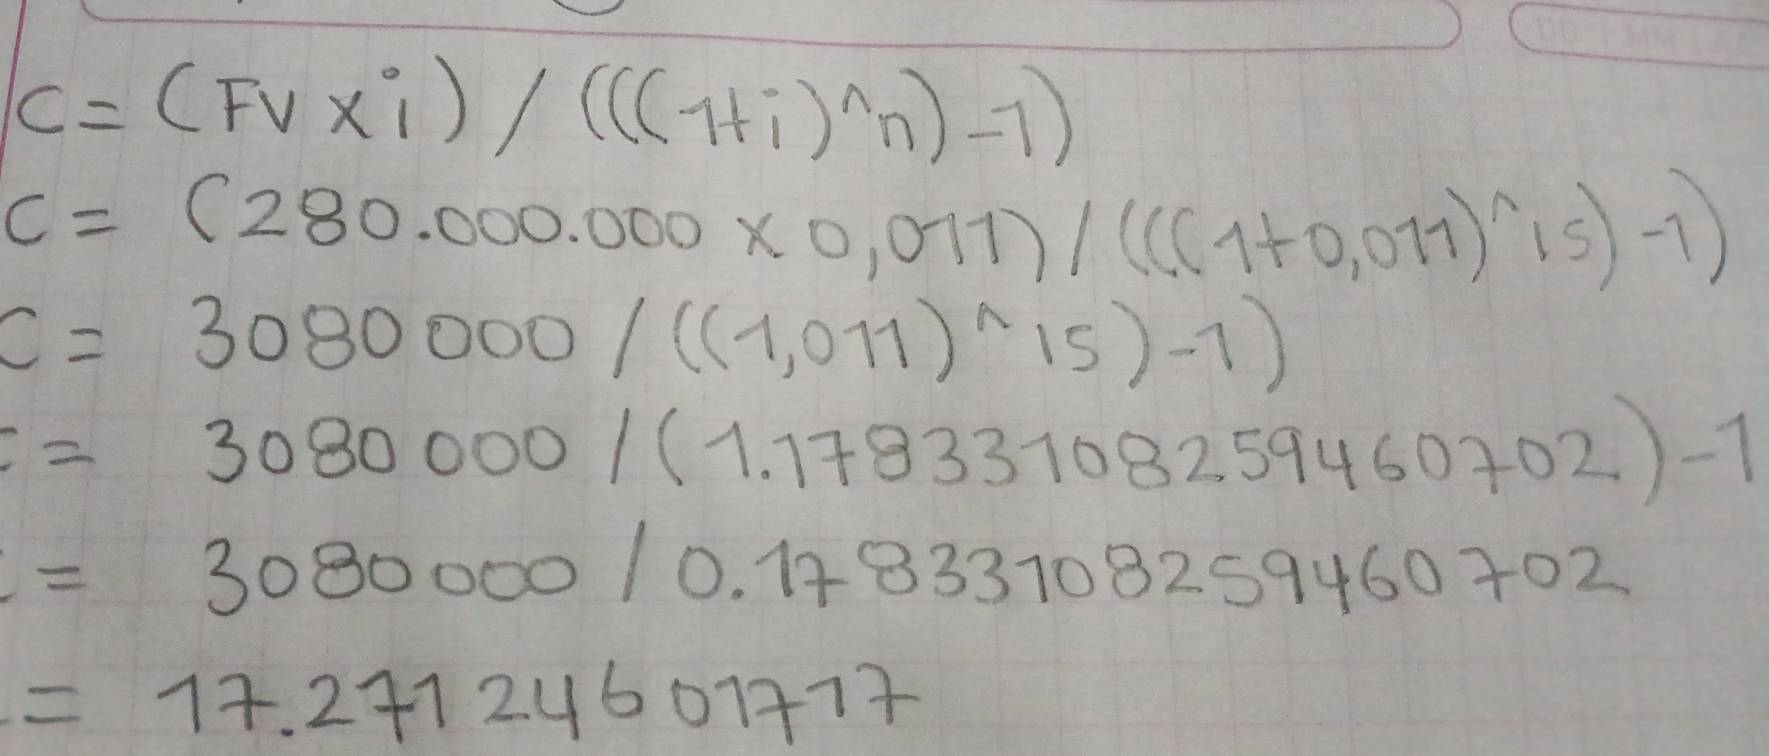 C = (FV x i) / (((1+i)^n)-1)
C = (280.000.000 x 0,011) / (((1+0,011)^15)-1)
C = 3080000 / ((1,011)^15)-1)
= 3080000 / (1.17833108259460702)-1
= 3080000 / 0.17833108259460702
= 17.27124601717